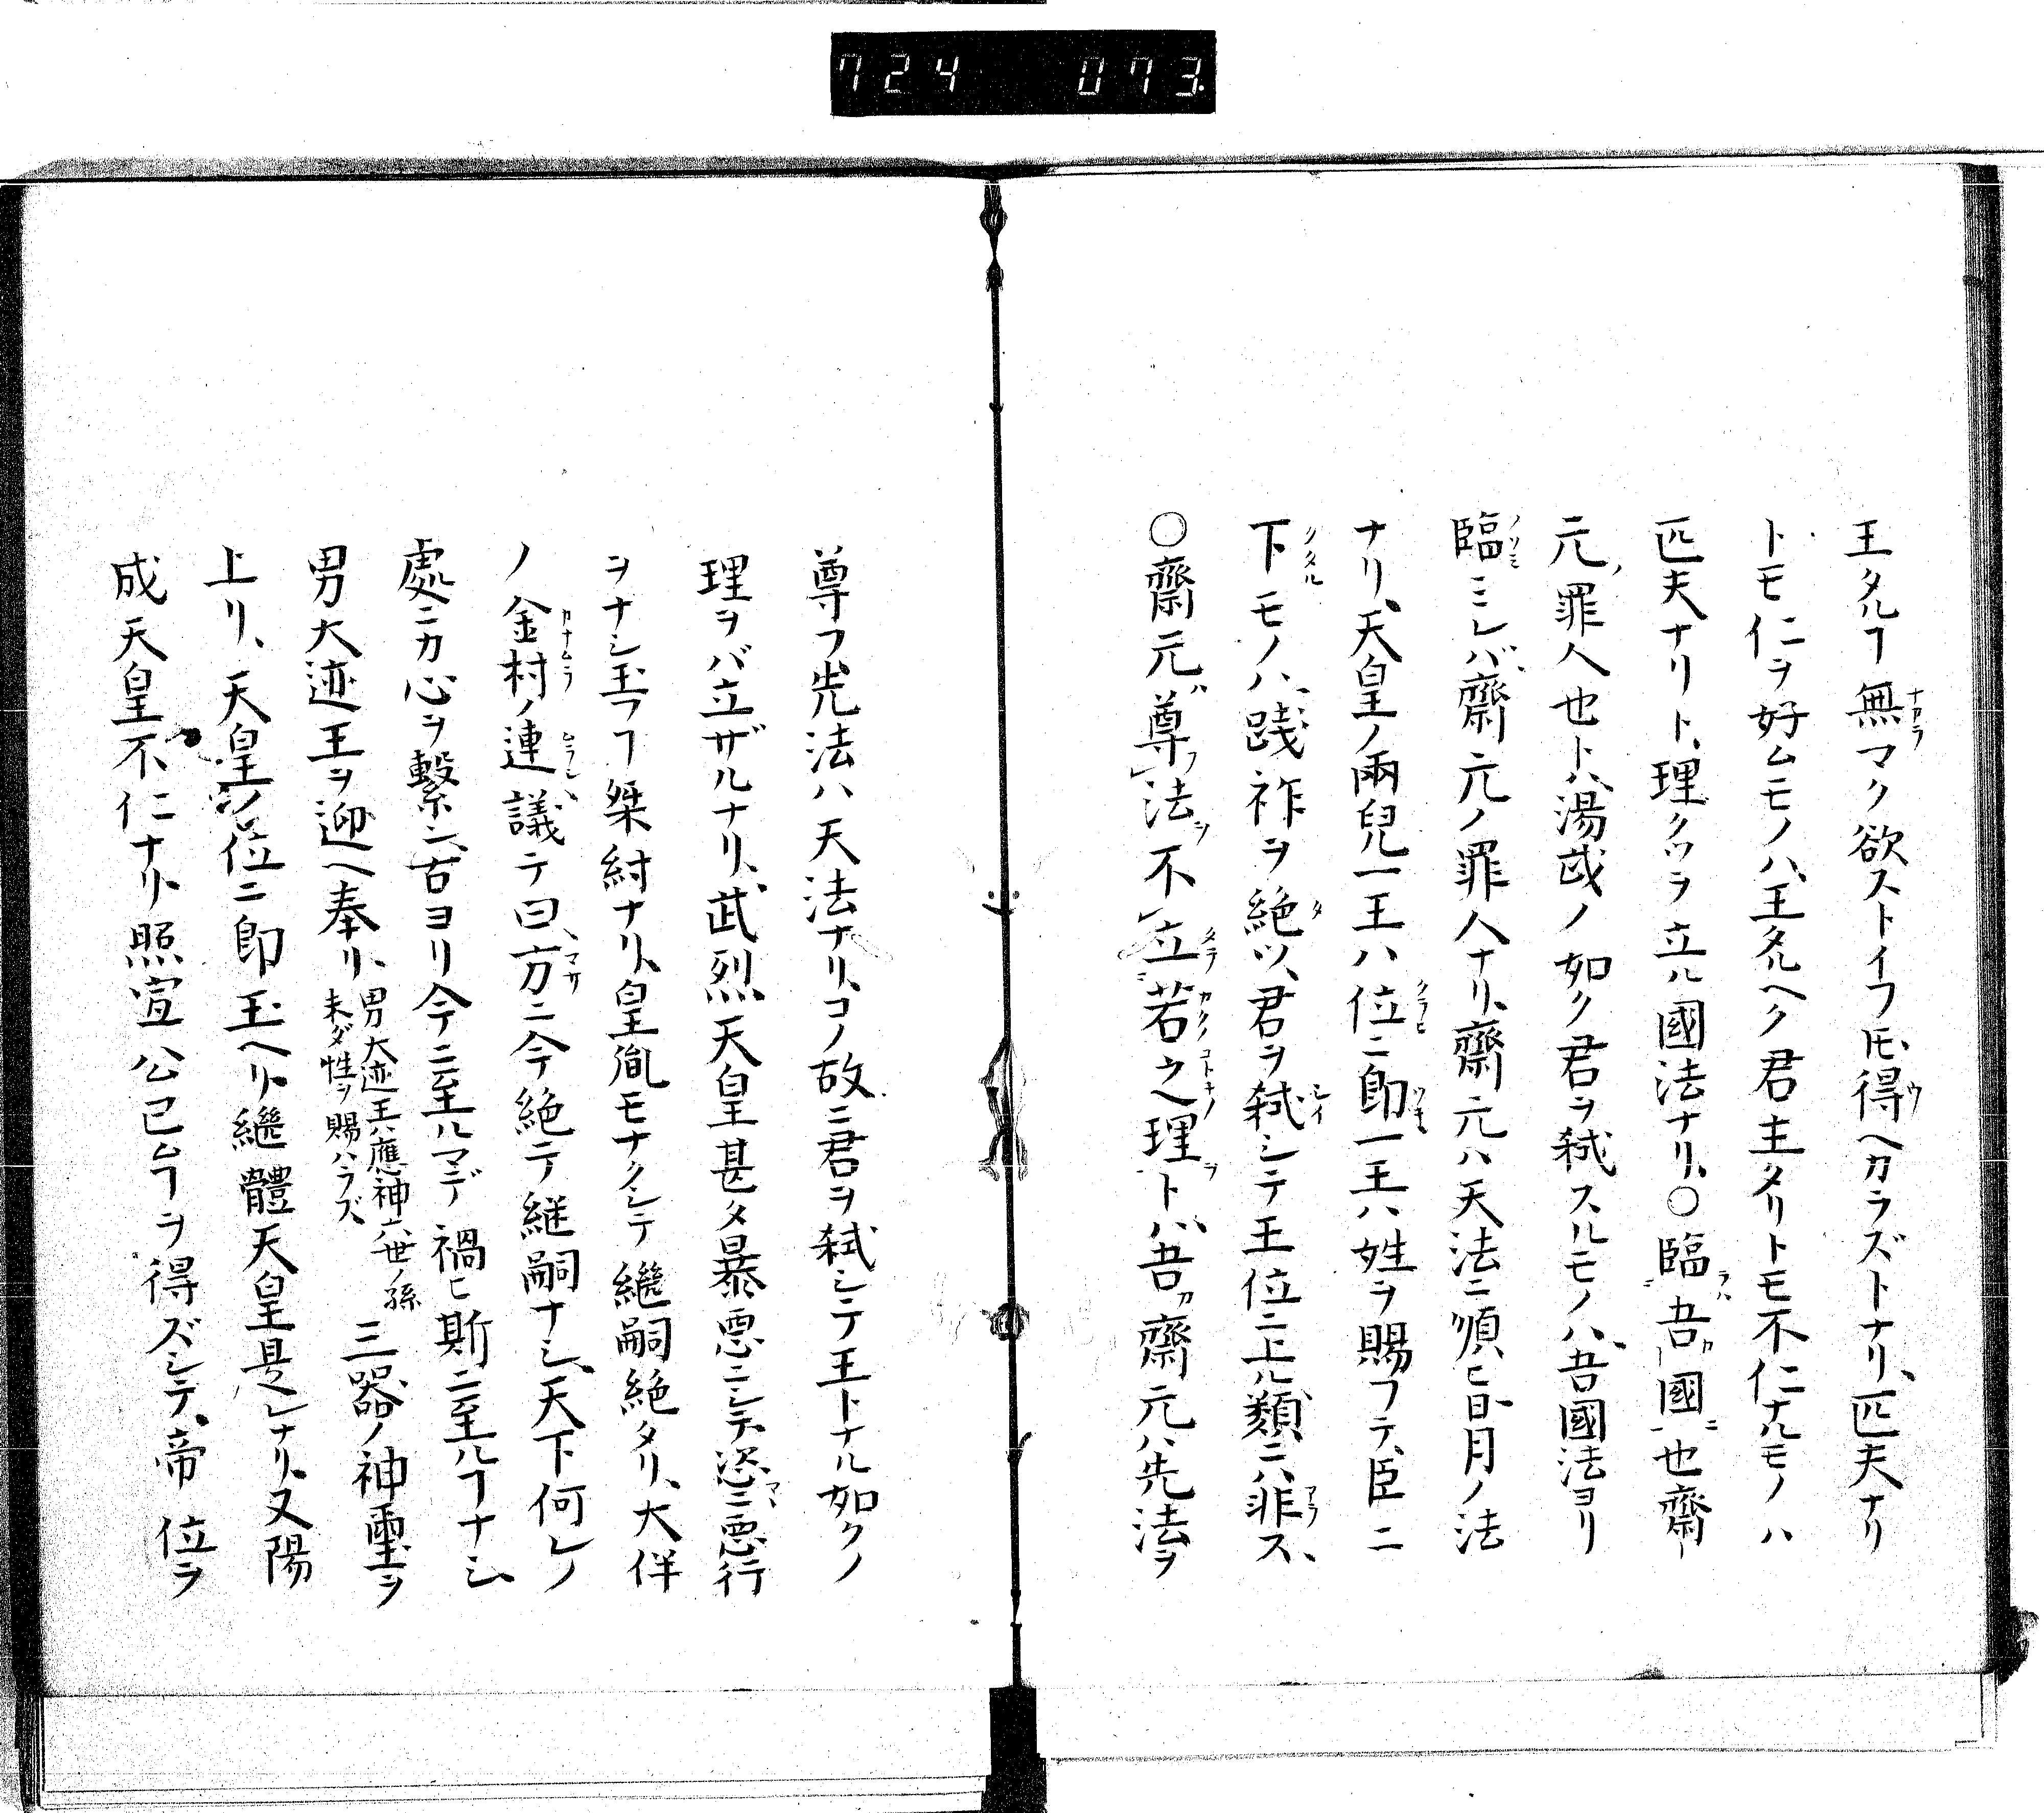 724 073.
王タルヿ無マク欲ストイフ𪜈、得ヘカラズトナリ、匹夫ナリ
トモ仁ヲ好ムモノハ、王タルヘク君主タリトモ不仁ナルモノハ
匹夫ナリト、理クツヲ立ル國法ナリ、○臨吾國也齋
元罪人也トハ湯武ノ如ク君ヲ弑スルモノハ、吾國法ヨリ
臨ミミレバ、齋元ノ罪人ナリ、齋元ハ天法ニ順ヒ日月ノ法
ナリ、天皇ノ兩兒一王ハ位ニ即一王ハ姓ヲ賜フテ、臣ニ
下モノハ、践祚ヲ絶ツ、君ヲ弑シテ王位ニ上ル類ニハ非ス、
○齋元ハ尊フ法ヲ不立若之理ヲトハ、吾カ齋元ハ先法ヲ
尊フ先法ハ天法ナリ、コノ故ニ君ヲ弑シテ王トナル如クノ
理ヲバ立ザルナリ、武烈天皇甚タ暴悪ニシテ、恣ニ悪行
ヲナシ玉フヿ桀紂ナリ、皇胤モナクシテ繼嗣絶タリ、大伴
ノ金村ノ連議テ曰、方ニ今絶テ継嗣ナシ、天下何レノ
處ニカ心ヲ繫ン、古ヨリ今ニ至ルマデ禍ヒ斯ニ至ルヿナシ
男大迹王ヲ迎ヘ奉リ、男大迹王ハ應神六世ノ孫未ダ性ヲ賜ハラズ、三器ノ神璽ヲ
上リ、天皇ノ位ニ即玉ヘリ、繼體天皇是レナリ、又陽
成天皇不仁ナリ、照宣公已ムヿヲ得ズシテ、帝位ヲ